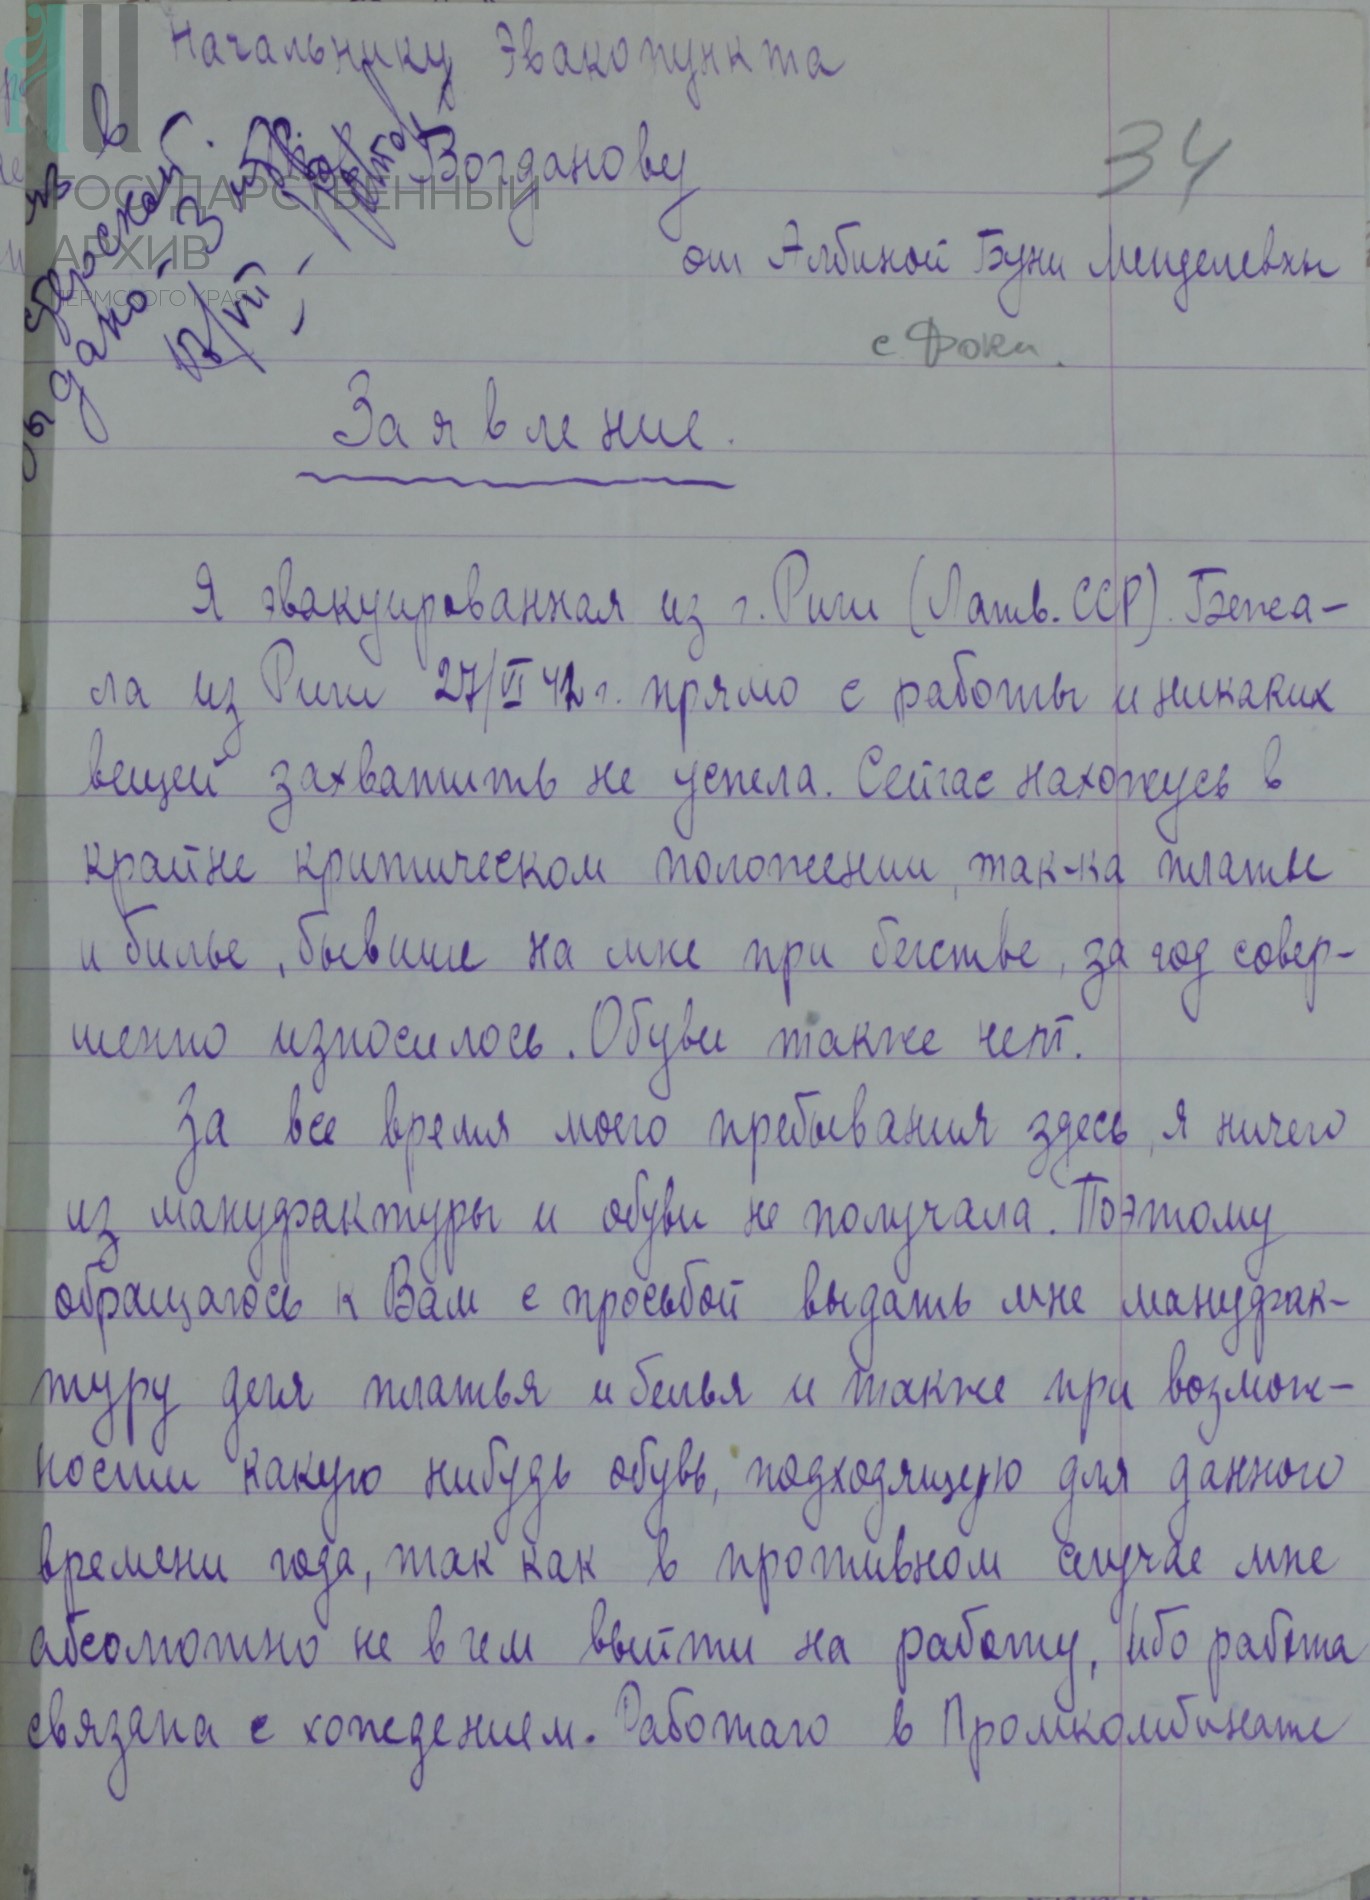 Начальнику Эвакопункта
Богданову
34
от Албиной Буни Менделевны
с Фоки.
Выдано 3
ГОСУДАРСТВЕННЫЙ
АРХИВ
ПЕРМСКОГО КРАЯ
Заявление.
Я эвакуированная из г. Риги (Латв. ССР). Бежа-
ла из Риги 27/VI 41 г. прямо с работы и никаких
вещей захватить не успела. Сейчас нахожусь в
крайне критическом положении, так-ка платье
и билье, бывшие на мне при бегстве, за год совер-
шенно износилось. Обуви также нет.
За все время моего пребывания здесь, я ничего
из мануфактуры и обуви не получала. Поэтому
обращаюсь к Вам с просьбой выдать мне мануфак-
туру для платья и белья и также при возмож-
ности какую нибудь обувь, подходящую для данного
времени года, так как в противном случае мне
абсолютно не в чем выйти на работу, ибо работа
связана с хождением. Работаю в Промкомбинате